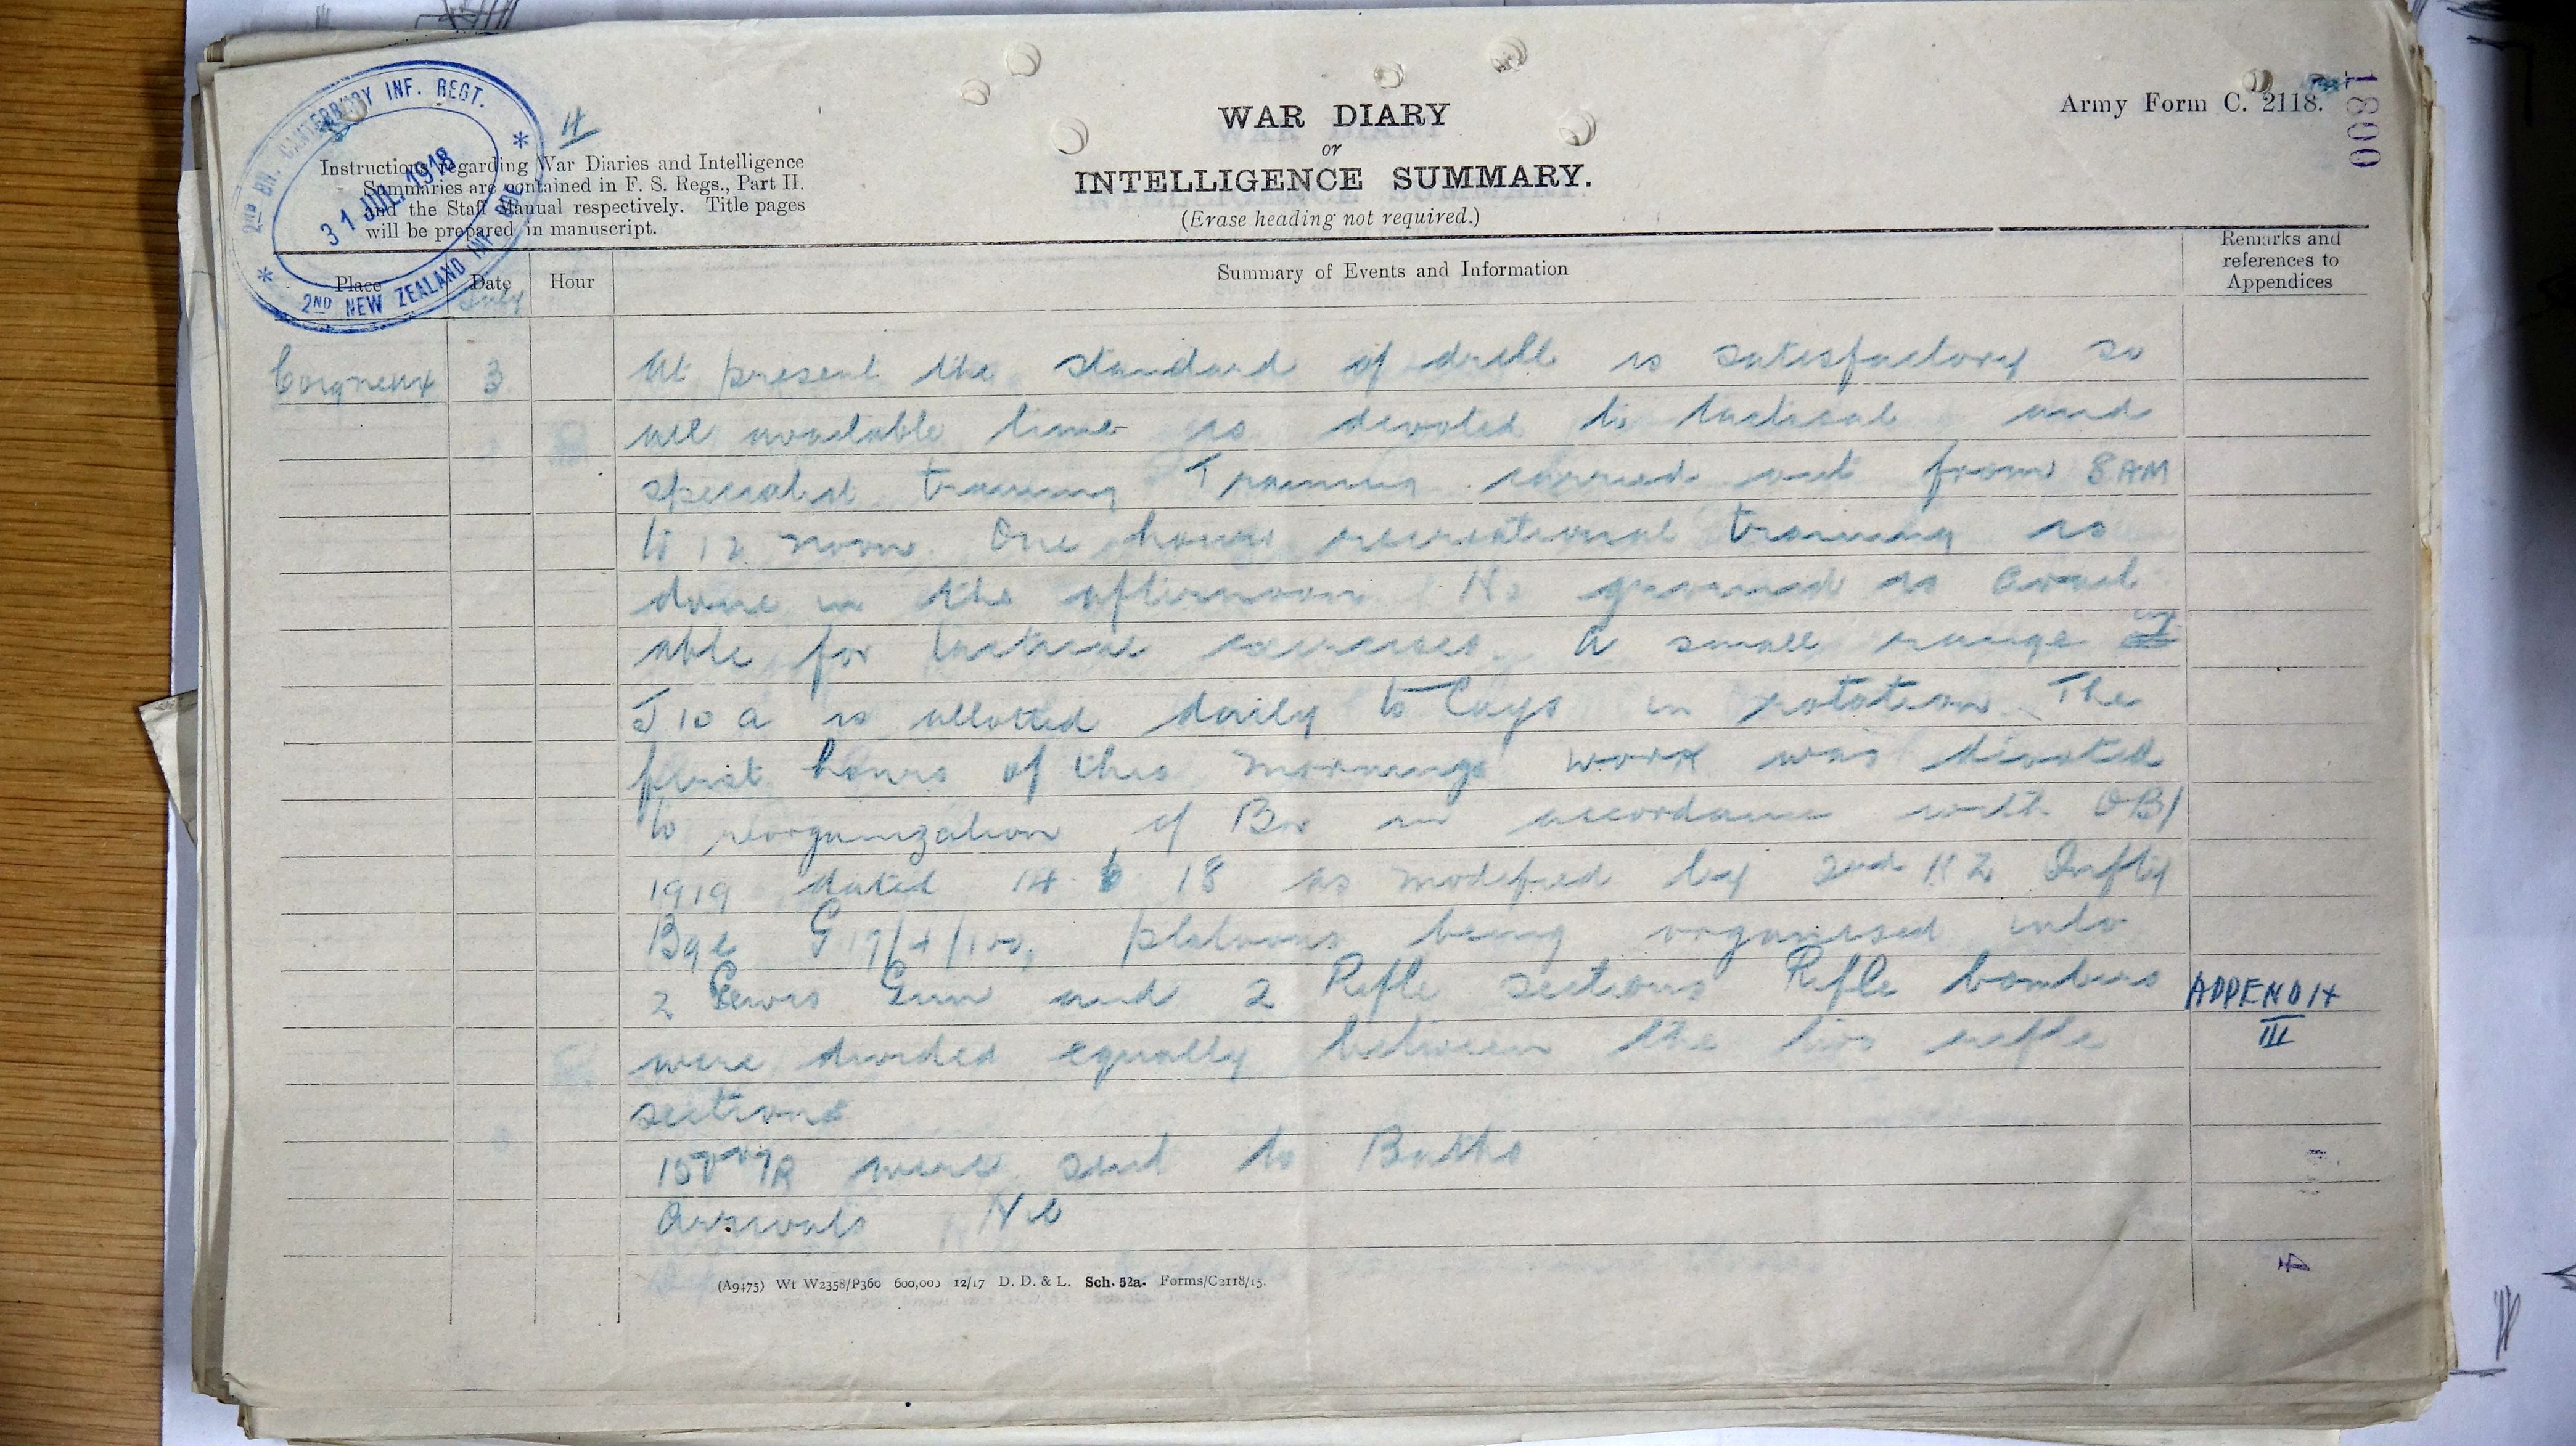 2ND BN. CANTERBURY INF. REGT.
31 JUL 1918
2ND NEW ZEALAND INF. BDE.
4
Instructions regarding War Diaries and Intelligence
Summaries are contained in F. S. Regs., Part II.
and the Staff Manual respectively. Title pages
will be prepared in manuscript.
WAR DIARY
or
INTELLIGENCE SUMMARY.
(Erase heading not required.)
Army Form C. 2118.
1800
Place
Date
Hour
Summary of Events and Information
Remarks and
references to
Appendices
July
Coigneux 3 At present the standard of drill is satisfactory so
all available time is devoted to tactical and
specialist training Training carried out from 8 AM
to 12 noon. One hours recreational training is
done in the afternoon No ground is avail
able for tactical exercises. A small range in
J 10 a is allotted daily to Coys in rotation. The
first hours of this mornings work was devoted
to reorganization of Bn in accordance with OB/
1919 dated 14 6 18 as modified by 2nd N Z Inftry
Bge G 17/4/100, platoons being organised into
2 Lewis Gun and 2 Rifle sections Rifle bombers
APPENDIX
III
were divided equally between the two rifle
sections
were sent to Baths
Arrivals Nil
(A9475) Wt W2358/P360 600,000 12/17 D. D. & L. Sch. 52a. Forms/C2118/15.
4